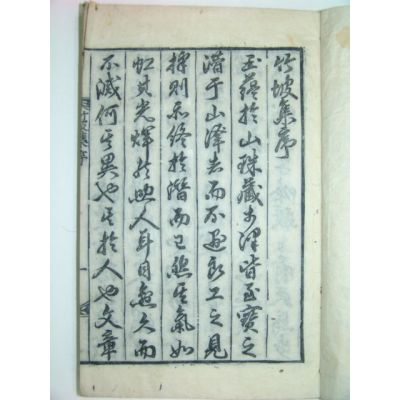 竹坡集序
玉蘊於山珠藏于澤皆至寶之
潛于山澤者而不遇良工之見
擇則亦終於潛而已然其氣如
虹其光輝於人耳目愈久而
不滅何其異也其於人也文章
竹坡集序